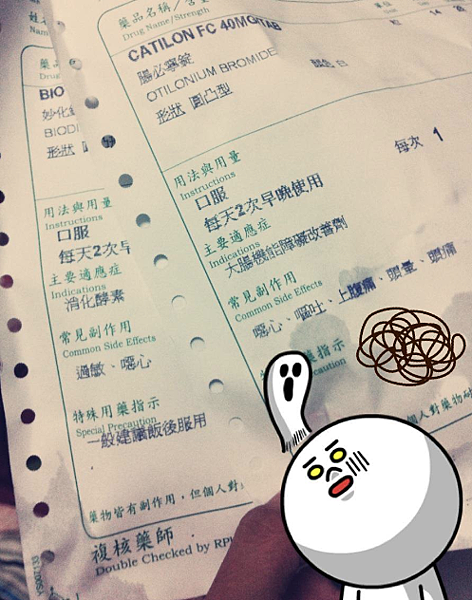 藥品名稱／含量
Drug Name/Strength
CATILON FC 40MG/TAB
腸必寧錠
OTILONIUM BROMIDE
形狀 圓凸型
顏色 白
用法與用量
Instructions
口服
每次 1
每天2次早晚使用
主要適應症
Indications
大腸機能障礙改善劑
常見副作用
Common Side Effects
噁心、嘔吐、上腹痛、頭暈、頭痛
指示
caution
個人對藥物
藥品
Drug
BIO
妙化錠
BIODI
形狀
用法與用量
Instructions
口服
每天2次早
主要適應症
Indications
消化酵素
常見副作用
Common Side Effects
過敏、噁心
特殊用藥指示
Special Precaution
一般建議飯後服用
藥物皆有副作用，但個人對
複核藥師
Double Checked by RPh